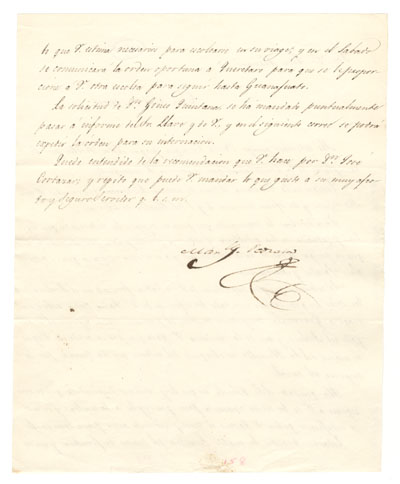 lo que V. estime necesario para escoltarse en su viage, y en el Sabado
se comunicará la orden oportuna á Queretaro para que se le propor-
cione á V. otra escolta para seguir hasta Guanajuato.
La solicitud de Dn. Quintanar se ha mandado puntualmente
pasar á informe del Sr. y de V., y en el siguiente correo se podrá
expedir la orden para su internacion.
Quedo entendido de la recomendacion que V. hace por Dn. José
y repito que puede V. mandar lo que guste á su muy afec-
to y Seguro Servidor q. b. s. m.